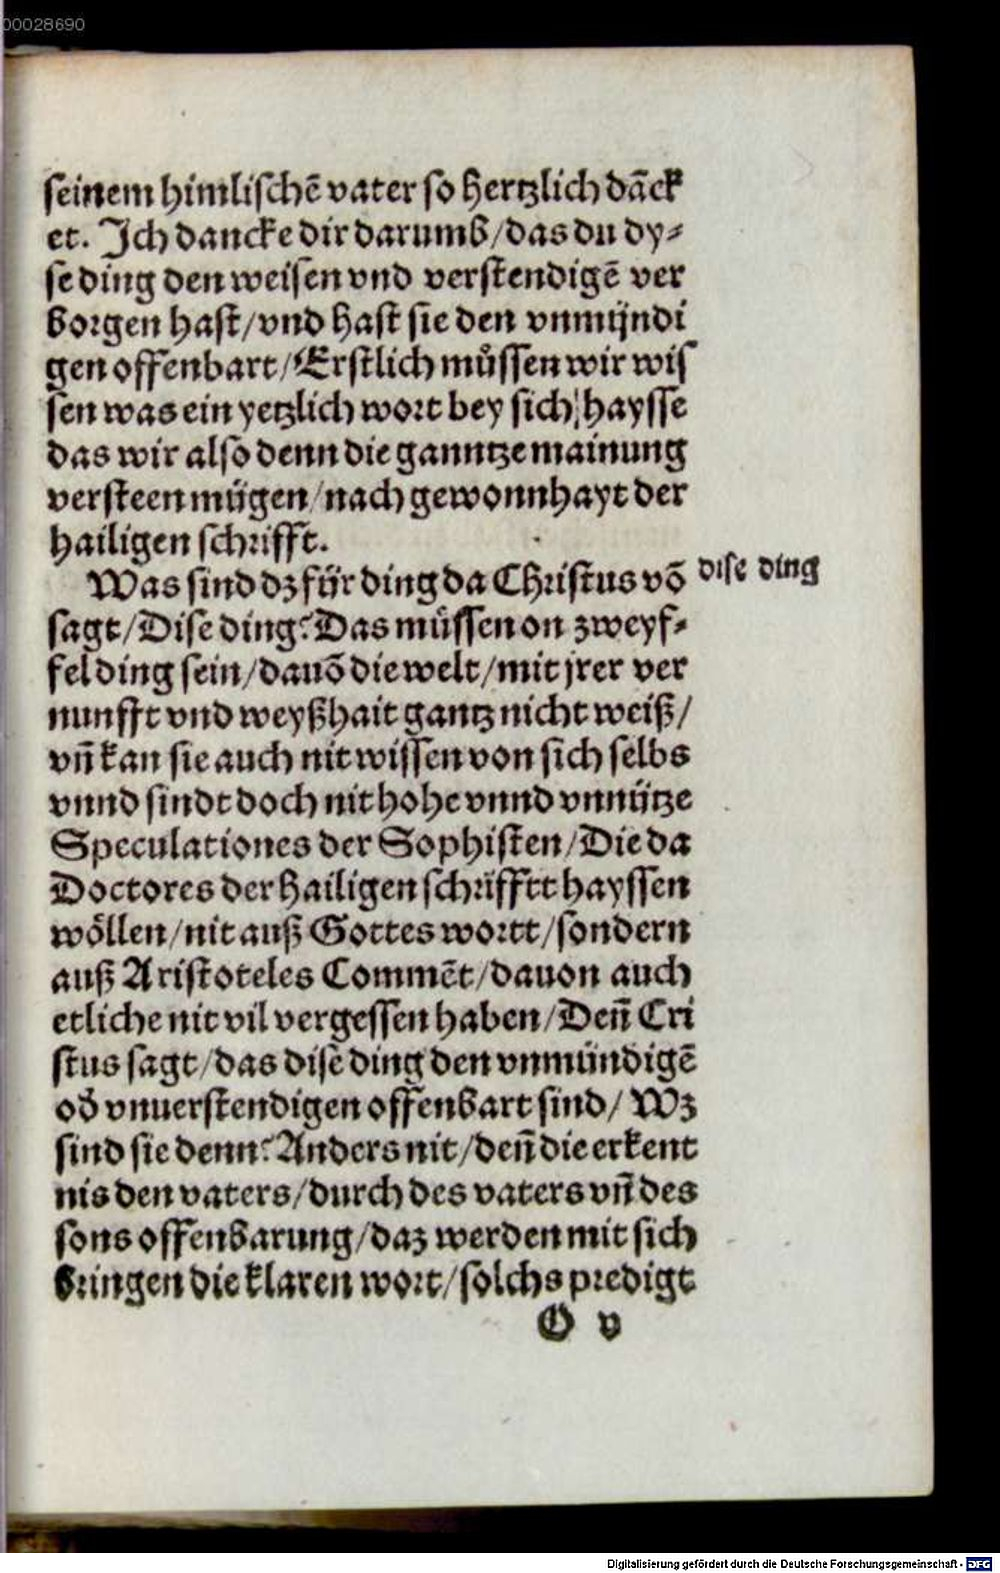 00028690
seinem himlischē vater so hertzlich dāck
et. Ich dancke dir darumb/das du dy⸗
se ding den weisen vnd verstendigē ver
borgen hast/vnd hast sie den vnmündi
gen offenbart/Erstlich müssen wir wis
sen was ein yetzlich wort bey sich haysse
das wir also denn die ganntze mainung
versteen mügen/nach gewonnhayt der
hailigen schrifft.
Was sind dz für ding da Christus vō
dise ding
sagt/Dise ding? Das müssen on zweyf⸗
fel ding sein/dauō die welt/mit jrer ver
nunfft vnd weyßhait gantz nicht weiß/
vñ kan sie auch nit wissen von sich selbs
vnnd sindt doch nit hohe vnnd vnnütze
Speculationes der Sophisten/Die da
Doctores der hailigen schrifftt hayssen
wöllen/nit auß Gottes wortt/sondern
auß Aristoteles Commēt/dauon auch
etliche nit vil vergessen haben/Deñ Cri
stus sagt/das dise ding den vnmündigē
od̄ vnuerstendigen offenbart sind/ Wz
sind sie denn? Anders nit/deñ die erkent
nis den vaters/durch des vaters vñ des
sons offenbarung/daz werden mit sich
bringen die klaren wort/solchs predigt
O v
Digitalisierung gefördert durch die Deutsche Forschungsgemeinschaft - DFG